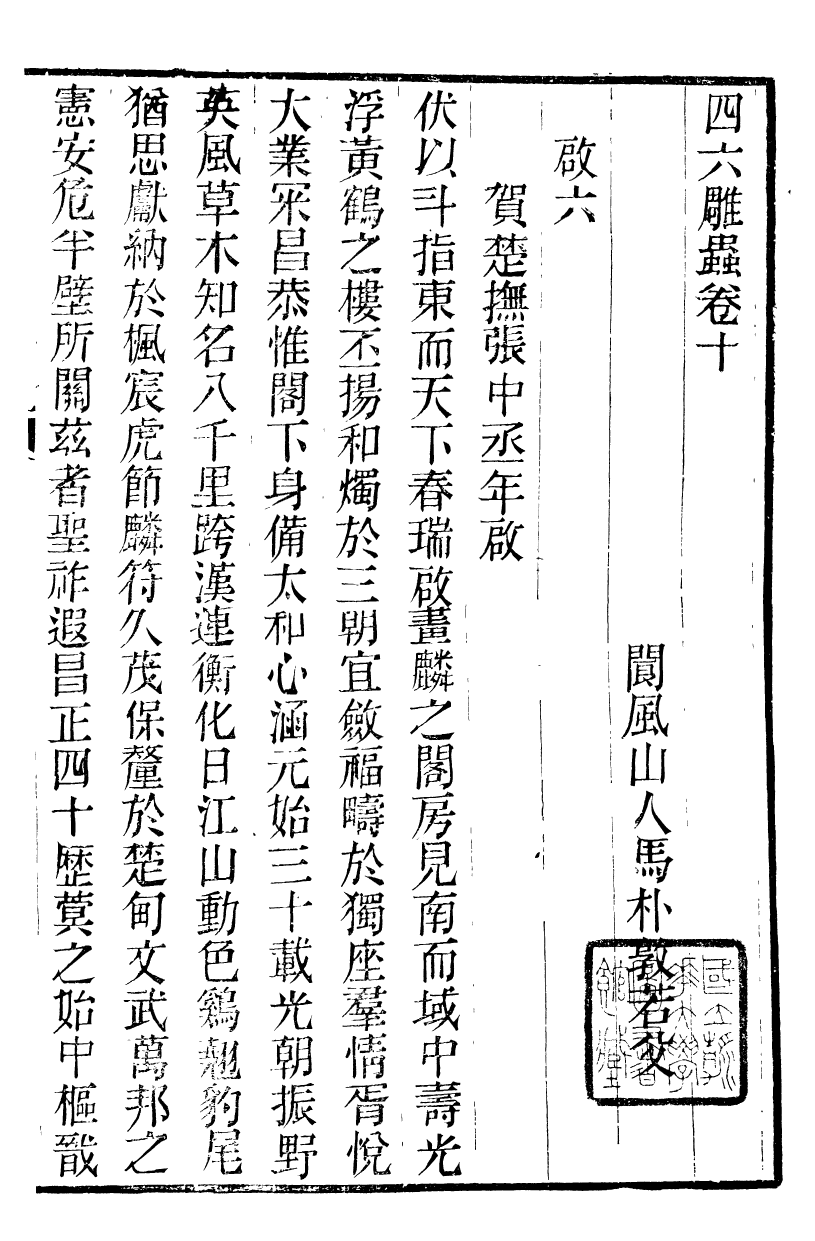 四六雕蟲卷十
閬風山人馬朴敦若父
啟六
賀楚撫張中丞年啟
伏以斗指東而天下春瑞啟畫麟之閣房見南而域中壽光
浮黃鶴之樓丕揚和燭於三朝宜斂福疇於獨座羣情胥悅
大業罙昌恭惟閣下身備太和心涵元始三十載光朝振野
英風草木知名八千里跨漢連衡化日江山動色鷄翹豹尾
猶思獻納於楓宸虎節麟符久茂保釐於楚甸文武萬邦之
憲安危半壁所關茲者聖祚遐昌正四十歷蓂之始中樞戩